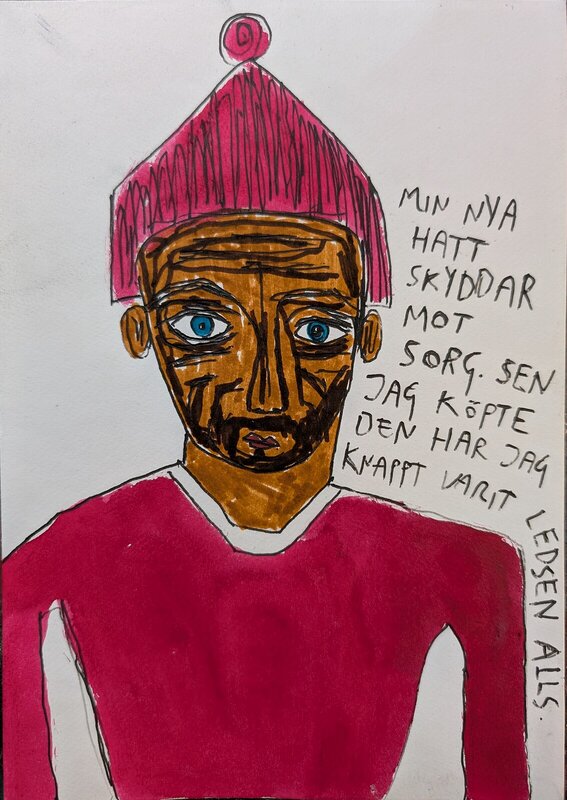 MIN NYA
HATT
SKYDDAR
MOT
SORG. SEN
JAG KÖPTE
DEN HAR JAG
KNAPPT VARIT
LEDSEN ALLS.